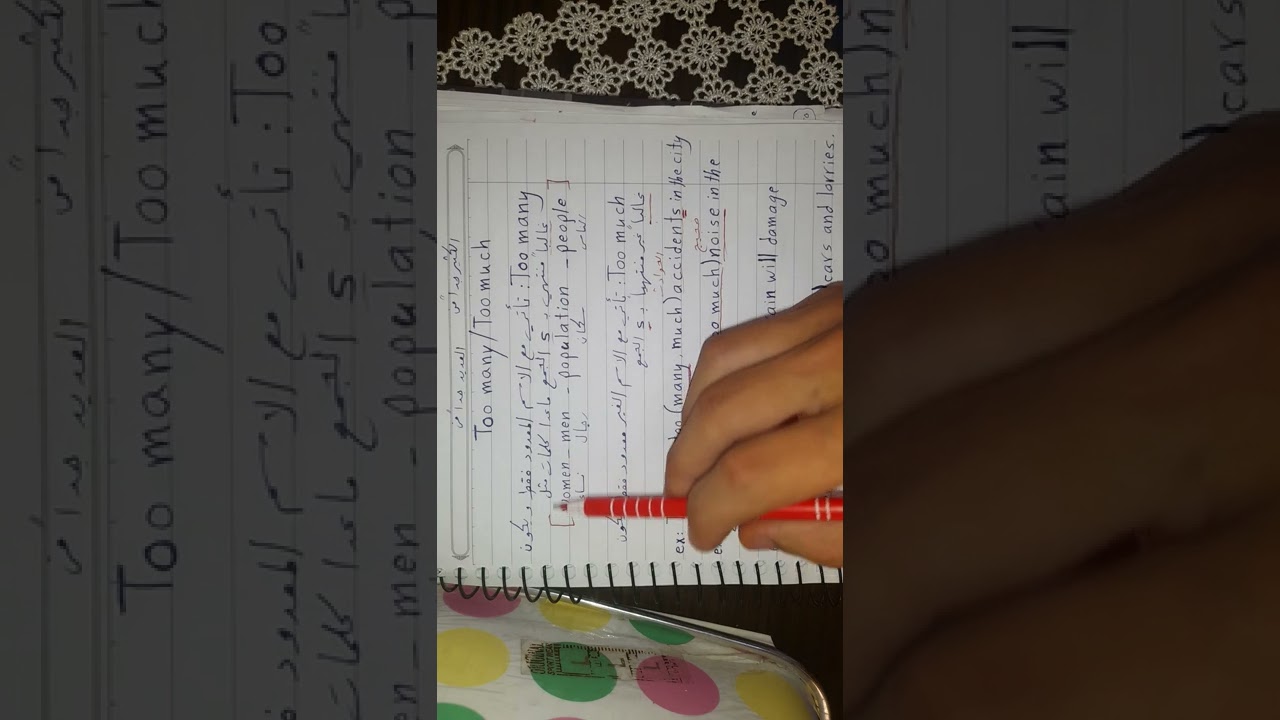 العديد جداً من الكثير جداً من
Too many/Too much
Too many: تأتي مع الاسم المعدود فقط ويكون
غالباً منتهي بـ s الجمع ماعدا كلمات مثل
[women - men - population - people]
نساء رجال سكان الناس
Too much: تأتي مع الاسم الغير معدود فقط ويكون
غالباً غير منتهياً بـ s الجمع
ex: too (many, much) accidents in the city
much) noise in the
ضجيج
rain will damage
cars and lorries.